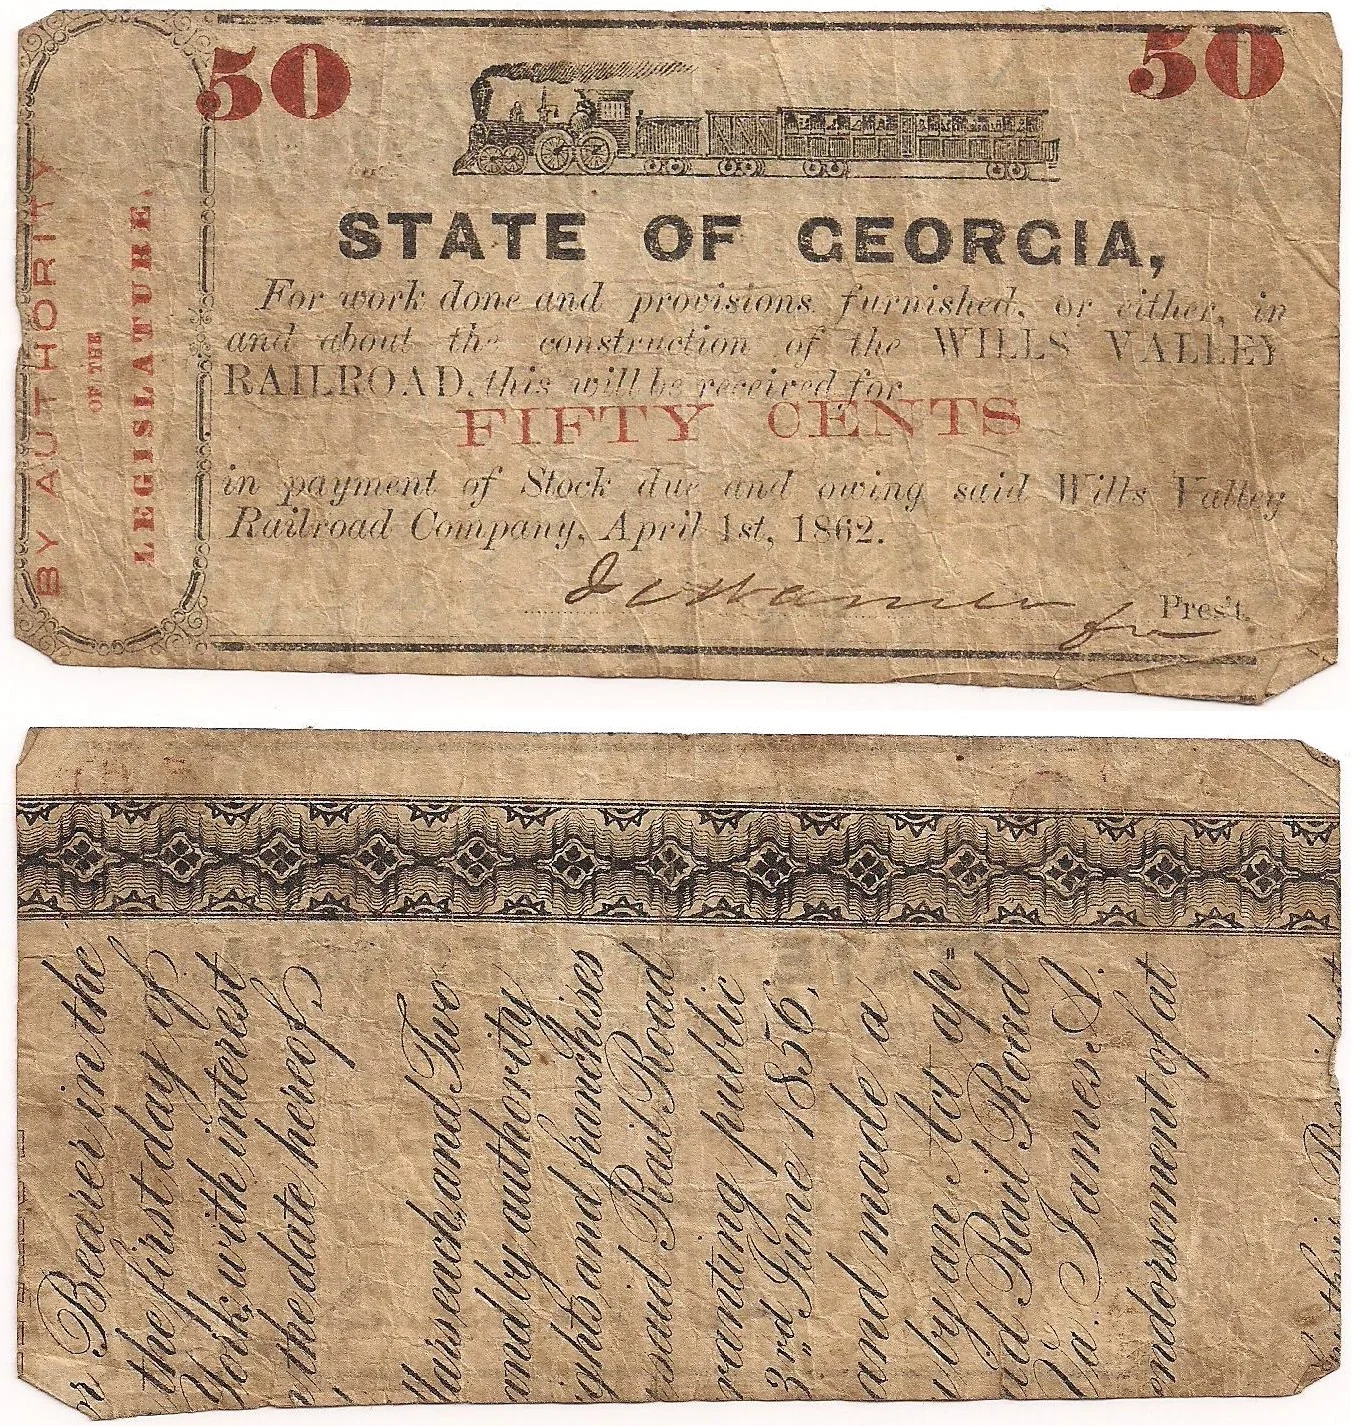 50
50
BY AUTHORITY
OF THE
LEGISLATURE.
STATE OF GEORGIA,
For work done and provisions furnished, or either, in
and about the construction of the WILLS VALLEY
RAILROAD, this will be received for
FIFTY CENTS
in payment of Stock due and owing said Wills Valley
Railroad Company, April 1st, 1862.
Pres't.
for
r Bearer in the
the first day of
York, with interest
the date hereof
llars each, and Two
and by authority
ghts and franchises
said Rail Road
rating public
3rd June 1856,
and made a
by an Act ap"
d Rail Road
Va. James A.
ndorsement of at